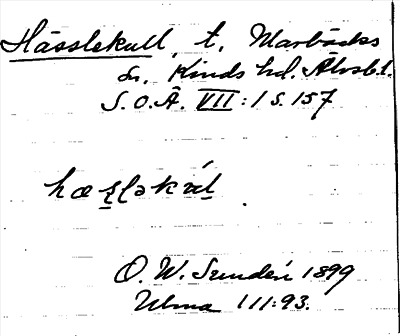 Hässlekull, t. Marbäcks
sn. Kinds hd. Älvsb. l.
S.O.Ä. VII:1 s. 157
hæsləkul
O. W. Sundén 1899
Ulma 111:93.